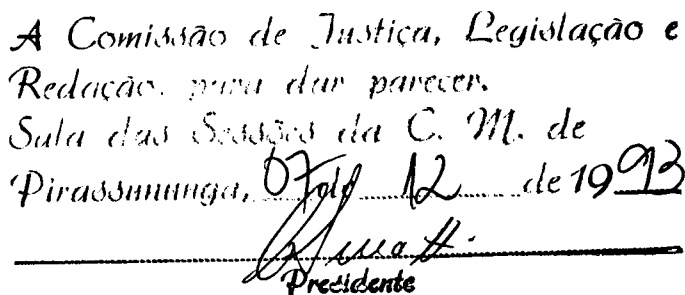 A Comissão de Justiça, Legislação e
Redação, para dar parecer.
Sala das Sessões da C. M. de
Pirassununga, 07 de 12 de 1993
Presidente